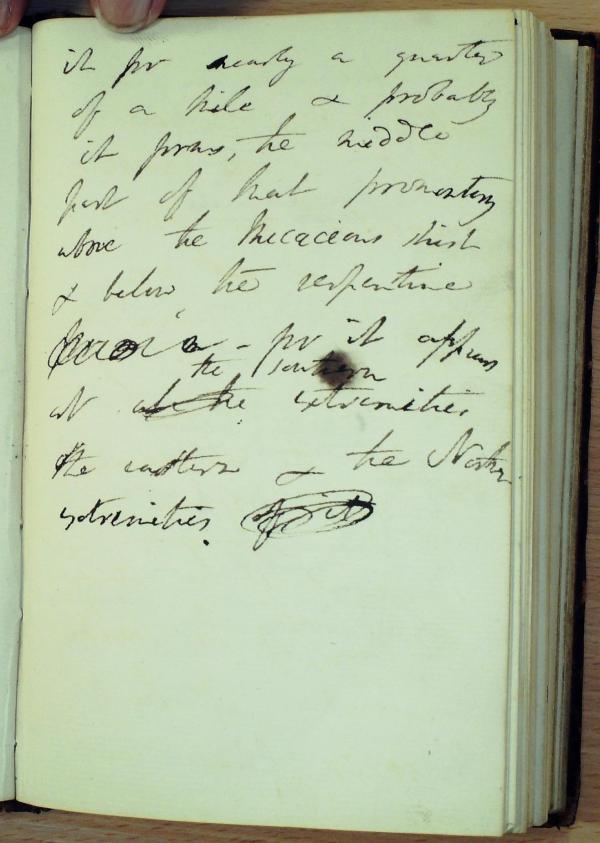 it for nearly a quarter
of a Mile & probably
it forms, the middle
part of that promontory
above the Micaceous shist
& below the serpentine
- for it appears
the southern
at the extremities
the eastern & the Northern
extremities of it